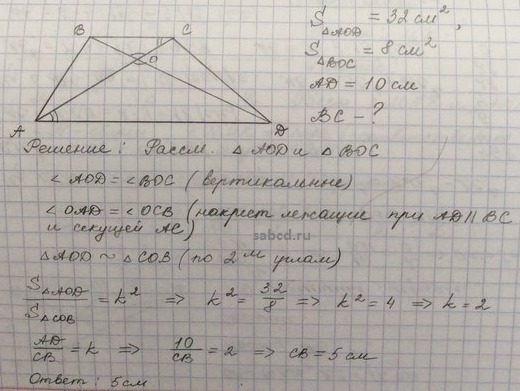 S△AOD = 32 см²,
S△BOC = 8 см²
AD = 10 см
BC – ?
B
C
O
A
D
Решение: Рассм. △ AOD и △ BOC
∠ AOD = ∠ BOC (вертикальные)
∠ OAD = ∠ OCB (накрест лежащие при AD || BC
и секущей AC)
sabcd.ru
△ AOD ~ △ COB (по 2м углам)
S△AOD / S△COB = k² ⇒ k² = 32/8 ⇒ k² = 4 ⇒ k = 2
AD/CB = k ⇒ 10/CB = 2 ⇒ CB = 5 см
Ответ: 5 см